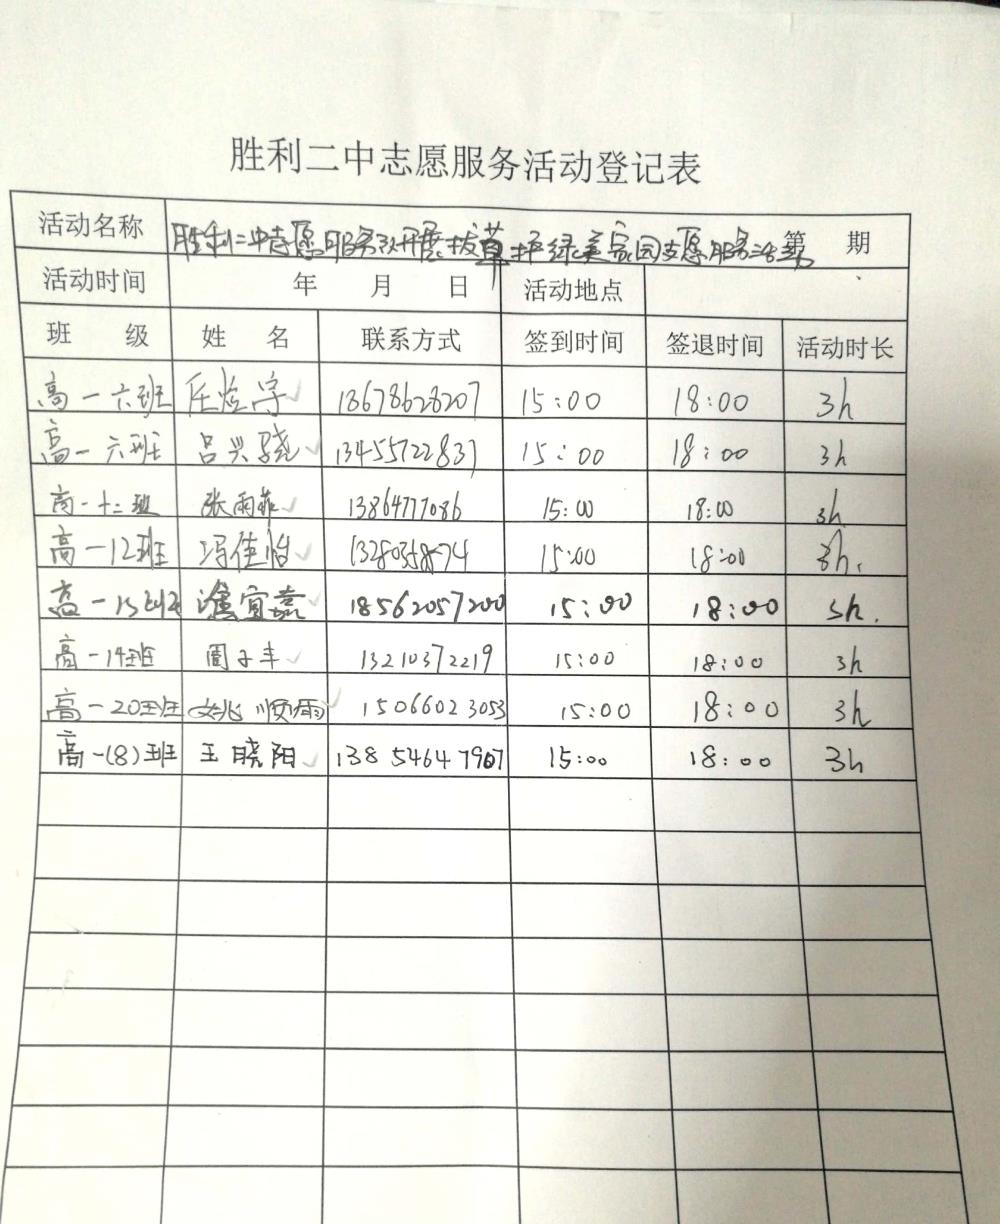 胜利二中志愿服务活动登记表
活动名称 胜利二中志愿服务队开展拔草护绿美家园志愿服务活动 第 期
活动时间 年 月 日 活动地点
班 级 姓 名 联系方式 签到时间 签退时间 活动时长
高一六班 13678628207 15:00 18:00 3h
高一六班 吕兴骁 13455722837 15:00 18:00 3h
高一十二班 张雨菲 13864777086 15:00 18:00 3h
高一12班 冯佳怡 13280358574 15:00 18:00 3h.
高一13班 宜嘉 18562057200 15:00 18:00 3h.
高一14班 周子丰 13210372219 15:00 18:00 3h
高一20班 姚顺雨 15066023053 15:00 18:00 3h
高一(8)班 王晓阳 13854647907 15:00 18:00 3h